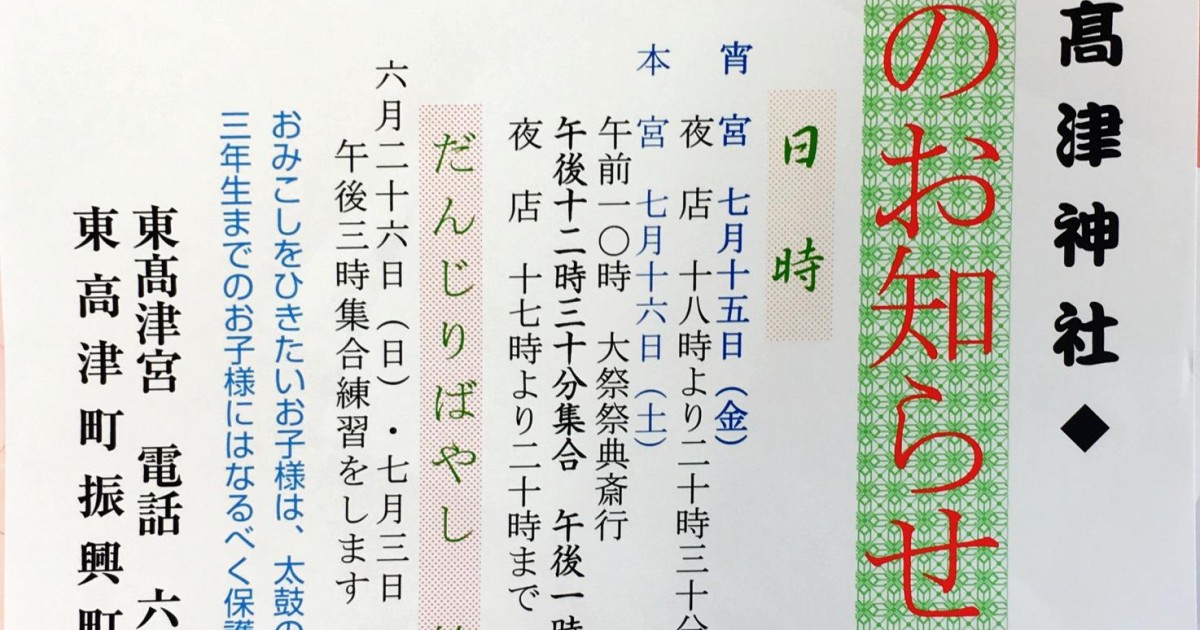 髙津神社◆
のお知らせ
日時
宵宮 七月十五日（金）
夜店 十八時より二十時三十分
本宮 七月十六日（土）
午前一〇時 大祭祭典斎行
午後十二時三十分集合 午後一時
夜店 十七時より二十時まで
だんじりばやし
六月二十六日（日）・七月三日
午後三時集合練習をします
おみこしをひきたいお子様は、太鼓の
三年生までのお子様にはなるべく保護
東髙津宮 電話 六
東高津町振興町